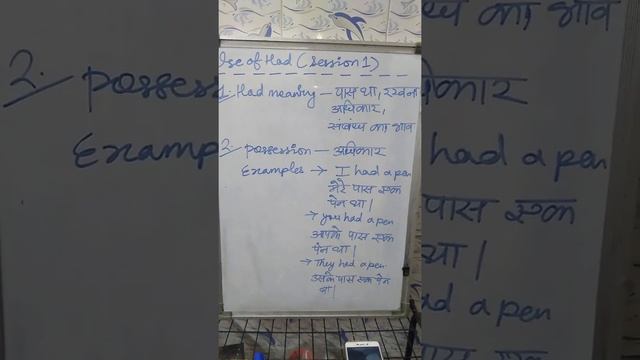 Use of Had (Session 1)
1. Had meaning – पास था, रखना
अधिकार,
संबंध का भाव
2. possession – अधिकार
Examples → I had a pen
मेरे पास एक
पेन था।
→ you had a pen
आपके पास एक
पेन था।
→ They had a pen
उसके पास एक पेन
था।